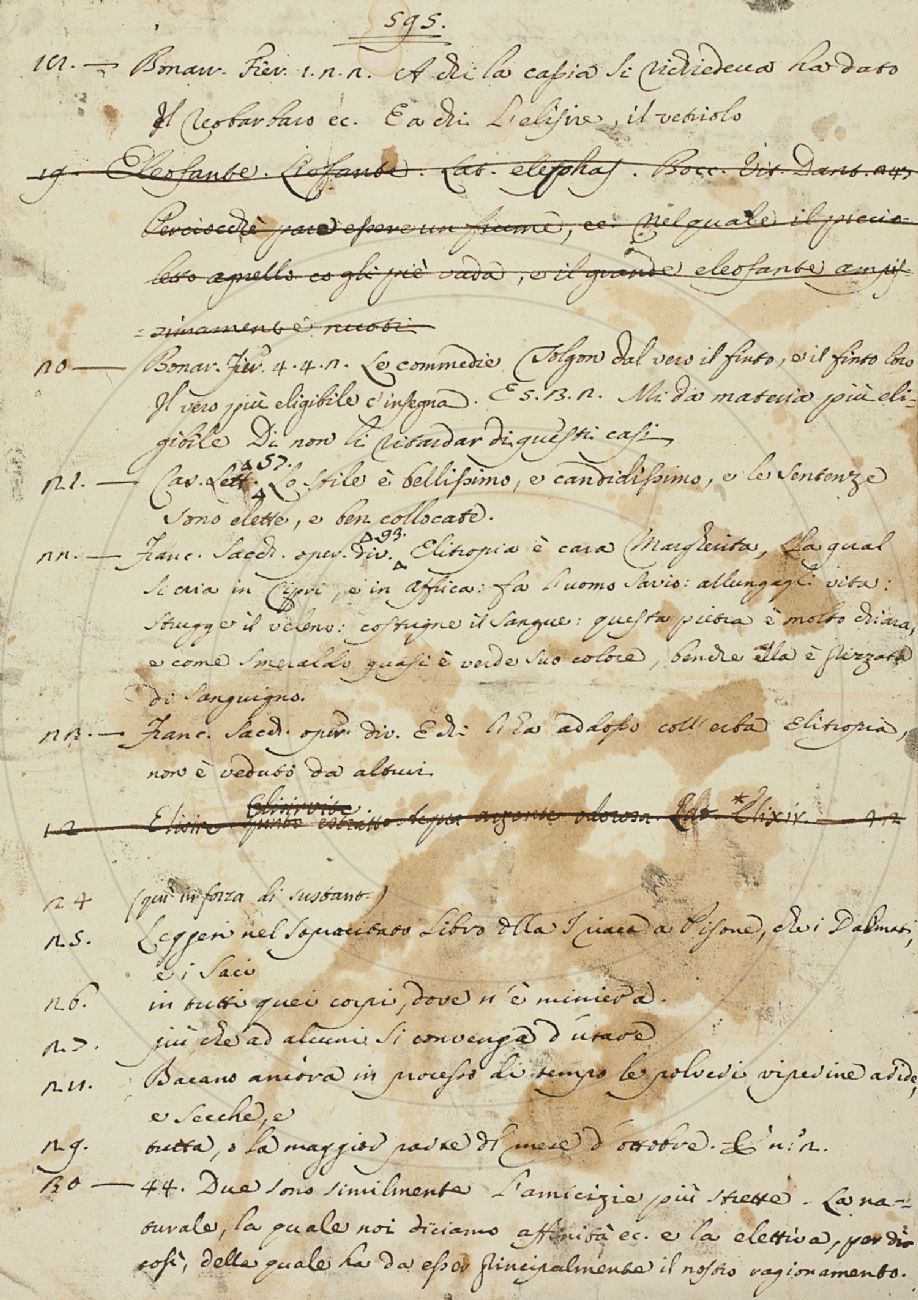 595.
18. — Bonarr. Fier. 1. 2. 2. A chi la cassia si richiedeva ha dato
Il reobarbaro ec. E a chi L'elisire, il vetriolo
19. Eleofante. Liofante. Lat. elephas. Bocc. Vit. Dant.
Perciocchè pare essere un fiume, ec. Nel quale il piccio-
letto agnello co gli piè vada, e il grande eleofante ampis-
simamente nuoti.
20 — Bonar. Fier. 4. 4. 2. Le commedie Tolgon dal vero il finto, e il finto loro
Il vero più eligibile c'insegna. E 5. 3. 2. Mi dà materia più eli-
gibile Di non li ritardar di questi casi
21. — Car. Lett. 57. Lo stile è bellissimo, e candidissimo, e le sentenze
sono elette, e ben collocate.
22. — Franc. Sacch. oper. div. 93. Elitropia è cara Margherita, La qual
si cria in Cipri, e in Affrica: fa l'uomo savio: allungagli vita:
strugge il veleno: costrigne il sangue: questa pietra è molto chiara,
e come smeraldo quasi è verde suo colore, benchè ella è strizzata
di sanguigno.
23. — Franc. Sacch. oper. div. E chi l'ha addosso coll'erba Elitropia,
non è veduto da altrui.
Elisirvite
12 Elisire estratto Acqua arzente odorosa. Lat. * Elixir. — 12
24 (qui in forza di sustant.)
25. Leggesi nel sopraccitato Libro della Triaca a Pisone, che i Dalmati,
e i Saci
26. in tutti quei corpi, dove n'è miniera.
27. più che ad alcuni si convenga d'usare
28. Bacano ancora in processo di tempo le polveri viperine acide,
e secche, e
29. tutta, o la maggior parte del mese d'ottobre.
30 — 44. Due sono similmente L'amicizie più strette. La na-
turale, la quale noi diciamo affinità ec. e la elettiva, per dir
così, della quale ha da esser principalmente il nostro ragionamento.